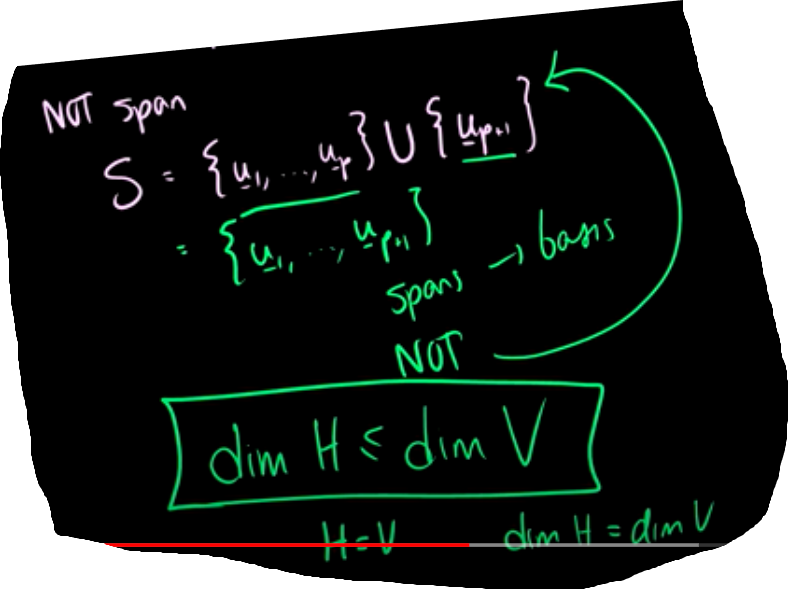 NOT span
S = {u̲₁, ..., u̲ₚ} ∪ {u̲ₚ₊₁}
= {u̲₁, ..., u̲ₚ₊₁}
spans → basis
NOT
dim H ≤ dim V
H = V dim H = dim V